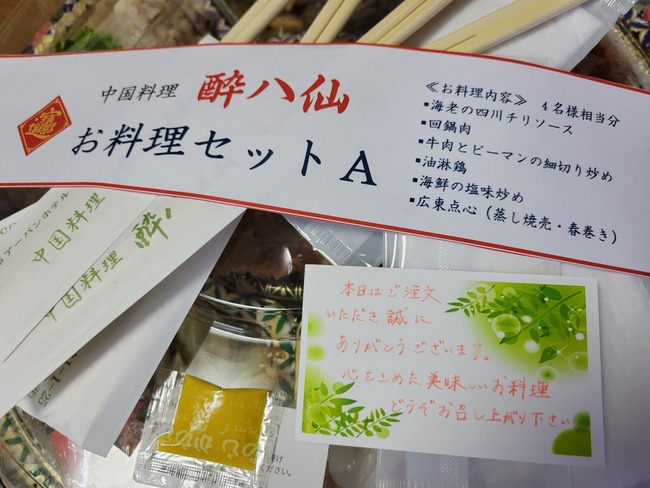 中国料理 酔八仙
お料理セットA
≪お料理内容≫ 4名様相当分
▪海老の四川チリソース
▪回鍋肉
▪牛肉とピーマンの細切り炒め
▪油淋鶏
▪海鮮の塩味炒め
▪広東点心（蒸し焼売・春巻き）
アーバンホテル
中国料理
中国料理 酔
本日はご注文
いただき誠に
ありがとうございます。
心をこめた美味しいお料理
どうぞお召し上がり下さい